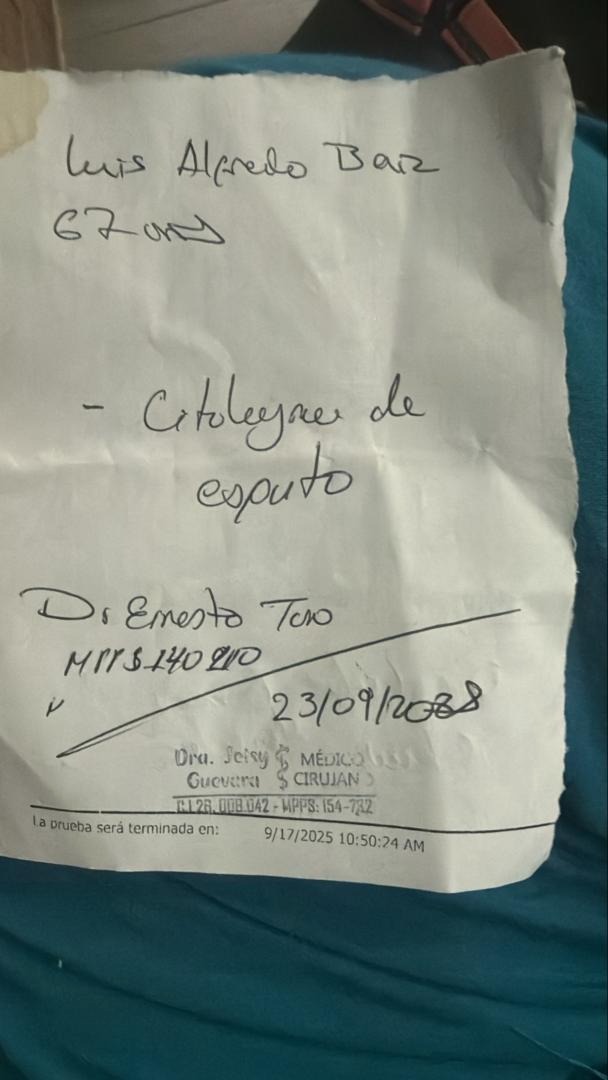 Luis Alfredo Baiz
67 años
- Citología de
esputo
Dr Ernesto Toro
MPPS 140 210
23/09/20
Dra. Guevara MÉDICO
CIRUJANO
C.I 26.008.042 - MPPS: 154-732
La prueba será terminada en: 9/17/2025 10:50:24 AM